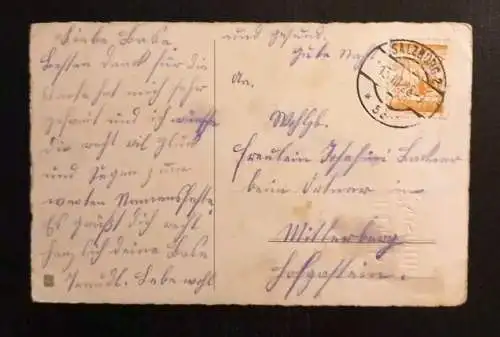 Liebe Base.
Besten Dank für die
Karte hat mich sehr
gefreut und ich wünsche
dir recht vil glück
und Segen zum
werten Namensfeste
Es grüßt dich recht
herzlich deine Base
Lebe wohl
und gesund.
Gute Nacht
SALZBURG 2
An.
Wohlgb.
Freulein Josefine
beim Ortner in
Mitterberg
Hofgastein.